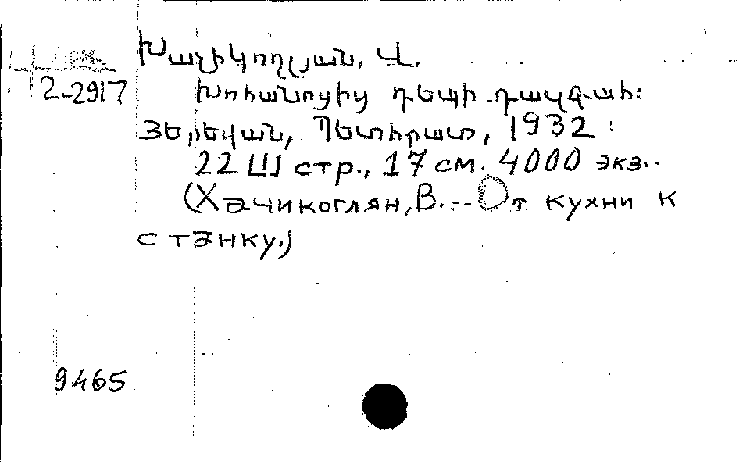 Խաչիկողլյան, Վ.
2-2917
Խոհանոցից դեպի դազգահ:
Յերեվան, Պետհրատ, 1932:
22 Ш стр., 17 см. 4000 экз.
(Хачикоглян, В. -- От кухни к
станку.)
9465